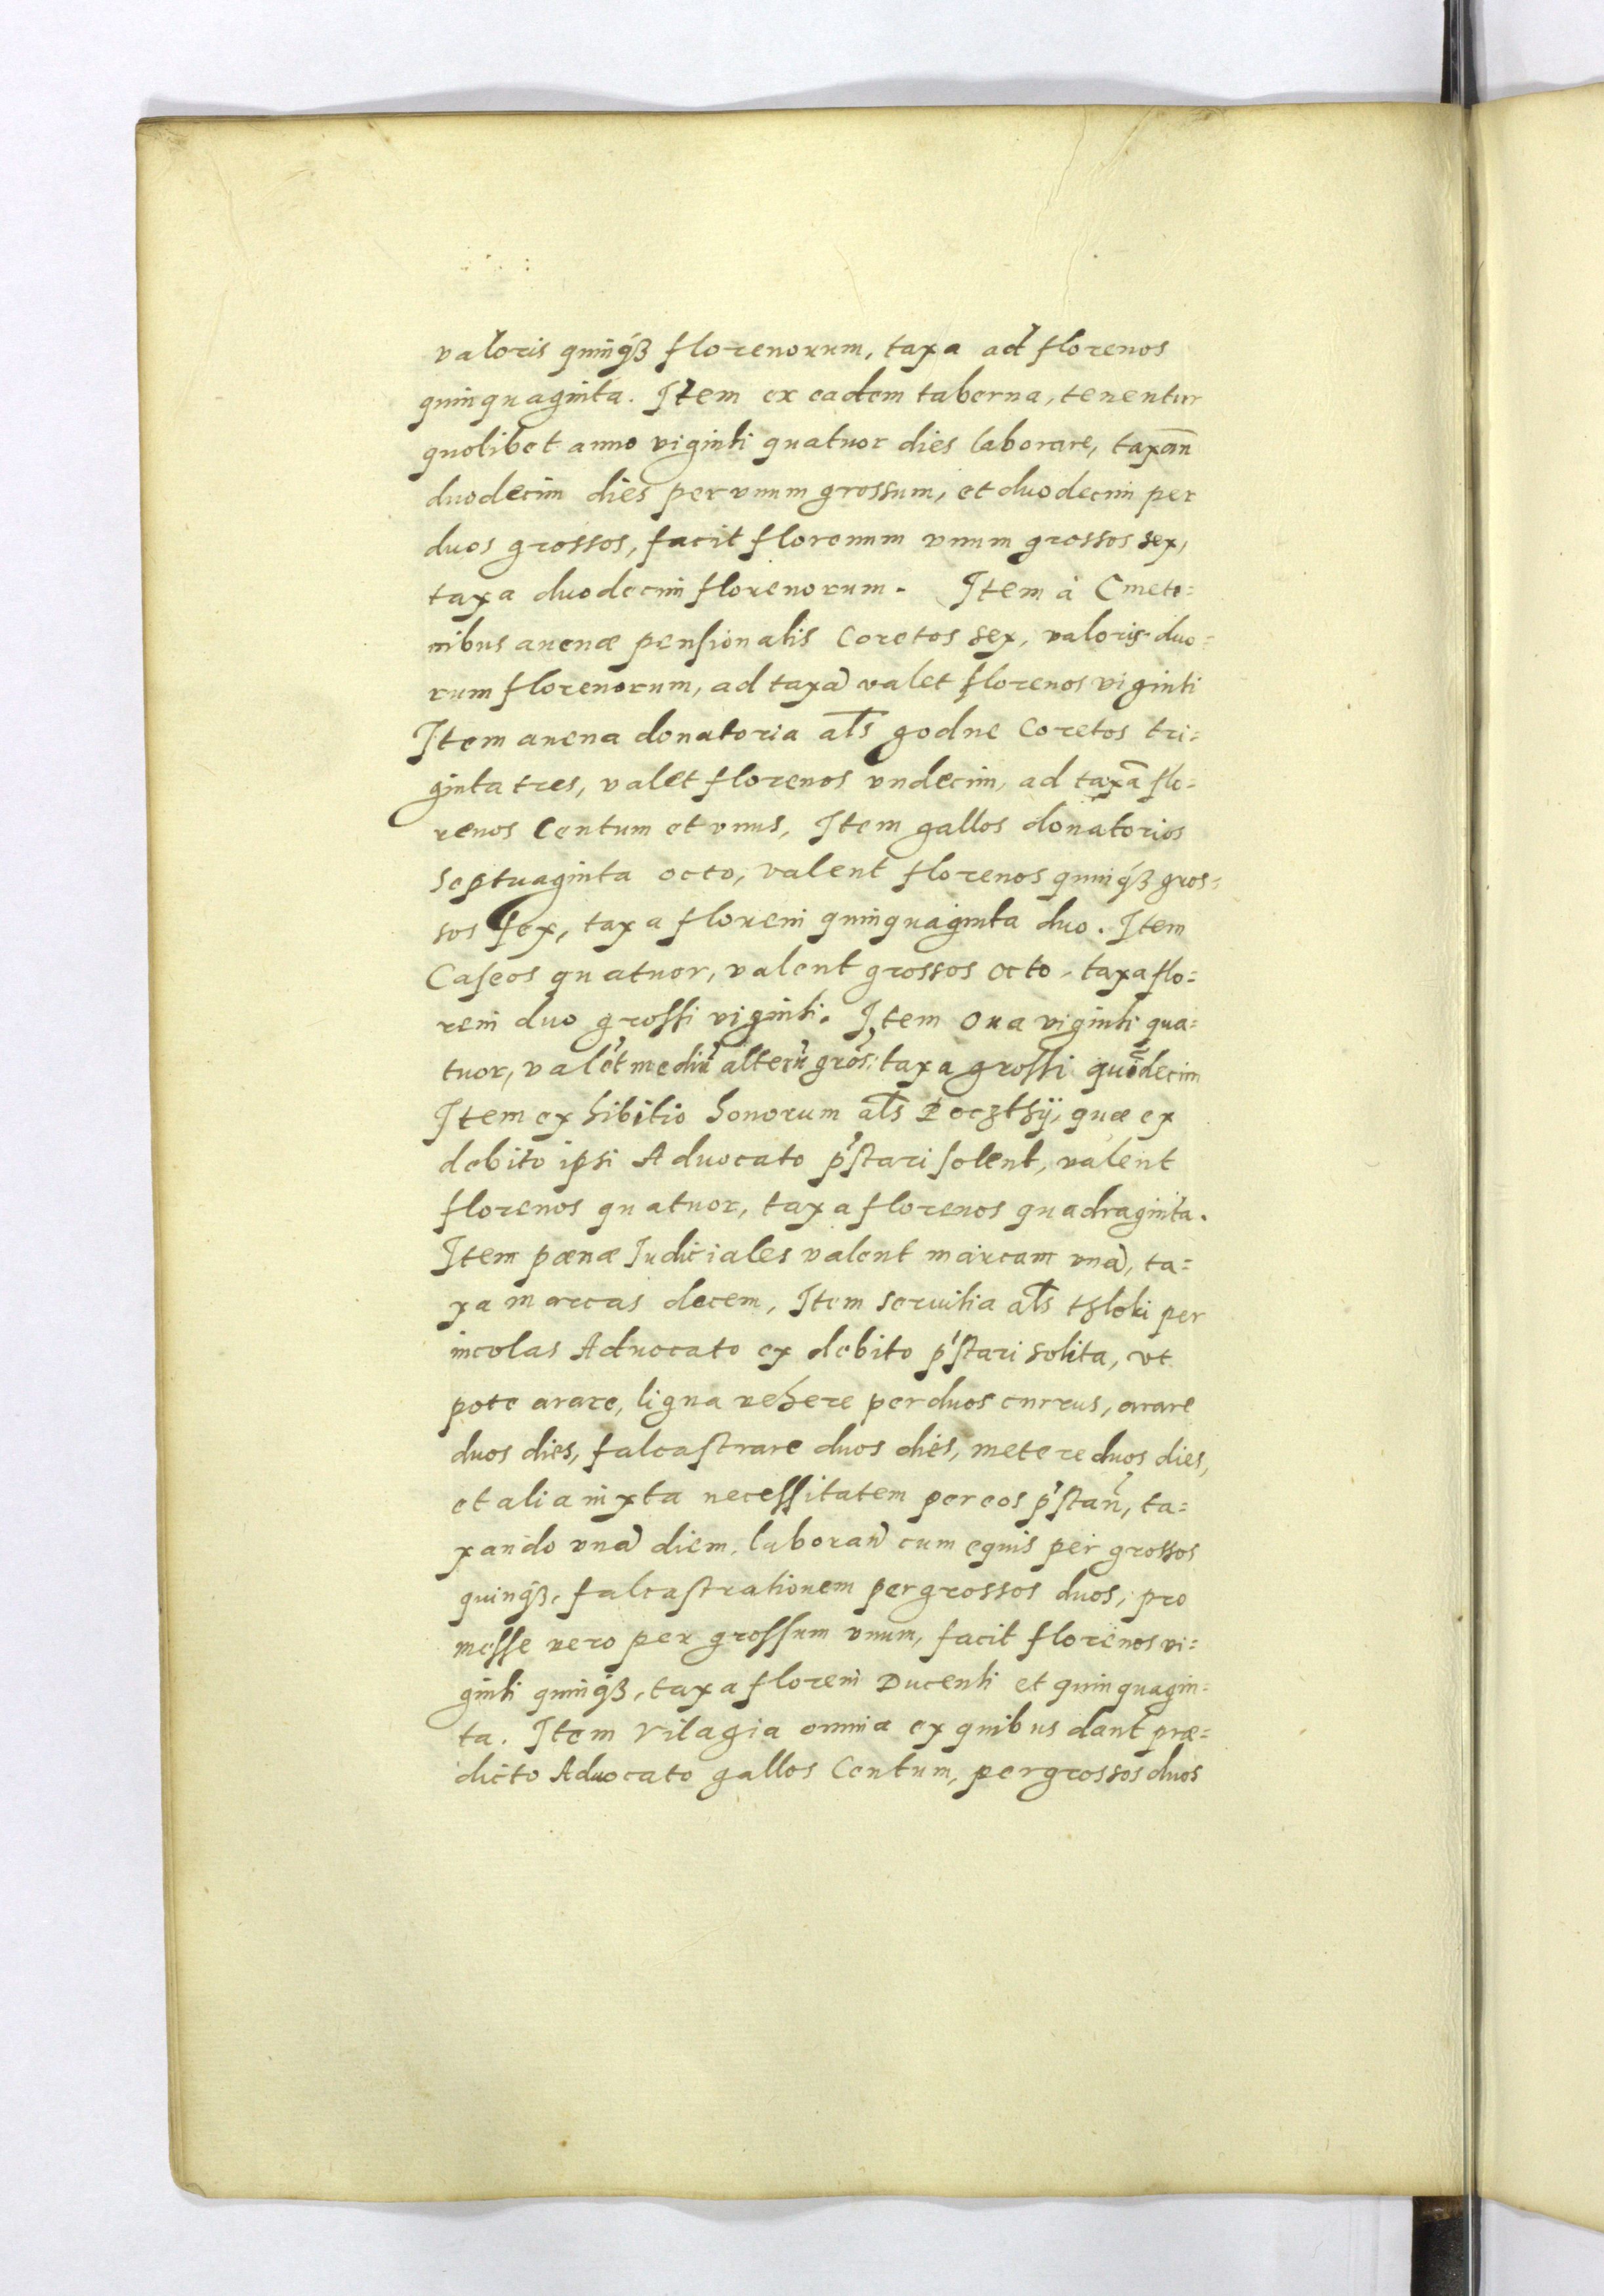 valoris quinqꝫ florenorum, taxa ad florenos
quinquaginta. Item ex eadem taberna, tenentur
quolibet anno viginti quatuor dies laborare, taxan̄
duodecim dies per vnum grossum, et duodecim per
duos grossos, facit florenum vnum grossos sex,
taxa duodecim florenorum. Item à Cmeto=
nibus auenæ pensionalis Coretos sex, valoris duo=
rum florenorum, ad taxã valet florenos viginti
Item auena donatoria al̄s godne Coretos tri=
ginta tres, valet florenos vndecim, ad taxã flo=
renos Centum et vnus, Item gallos donatorios
septuaginta octo, valent florenos quinqꝫ gros=
sos sex, taxa floreni quinquaginta duo. Item
Caseos quatuor, valent grossos octo, taxa flo=
reni duo grossi viginti. Item Oua viginti qua=
tuor, valet mediũ alterũ gros: taxa grossi quīdecim
Item exhibitio honorum al̄s Poczthÿ, quæ ex
debito ipsi Aduocato p̃stari solent, valent
florenos quatuor, taxa florenos quadraginta.
Item pœnæ Iudiciales valent marcam vnã, ta=
xa marcas decem, Item seruitia al̄s thloki per
incolas Aduocato ex debito p̃stari solita, vt
pote arare, ligna vehere per duos currus, arare
duos dies, falcastrare duos dies, metere duos dies,
et alia iuxta necessitatem per eos p̃stan̄, ta=
xando vnã diem, laboran̄ cum equis per grossos
quinqꝫ, falcastrationem per grossos duos, pro
messe vero per grossum vnum, facit florenos vi=
ginti quinqꝫ, taxa floreni Ducenti et quinquagin=
ta. Item Vilagia omnia ex quibus dant præ=
dicto Aduocato gallos Centum, per grossos duos